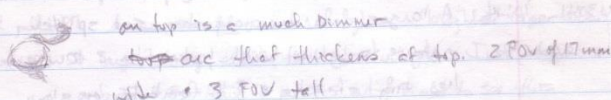 on top is a much Dimmer
arc that thickens at top. 2 FOV of 17mm
wide & 3 FOV tall